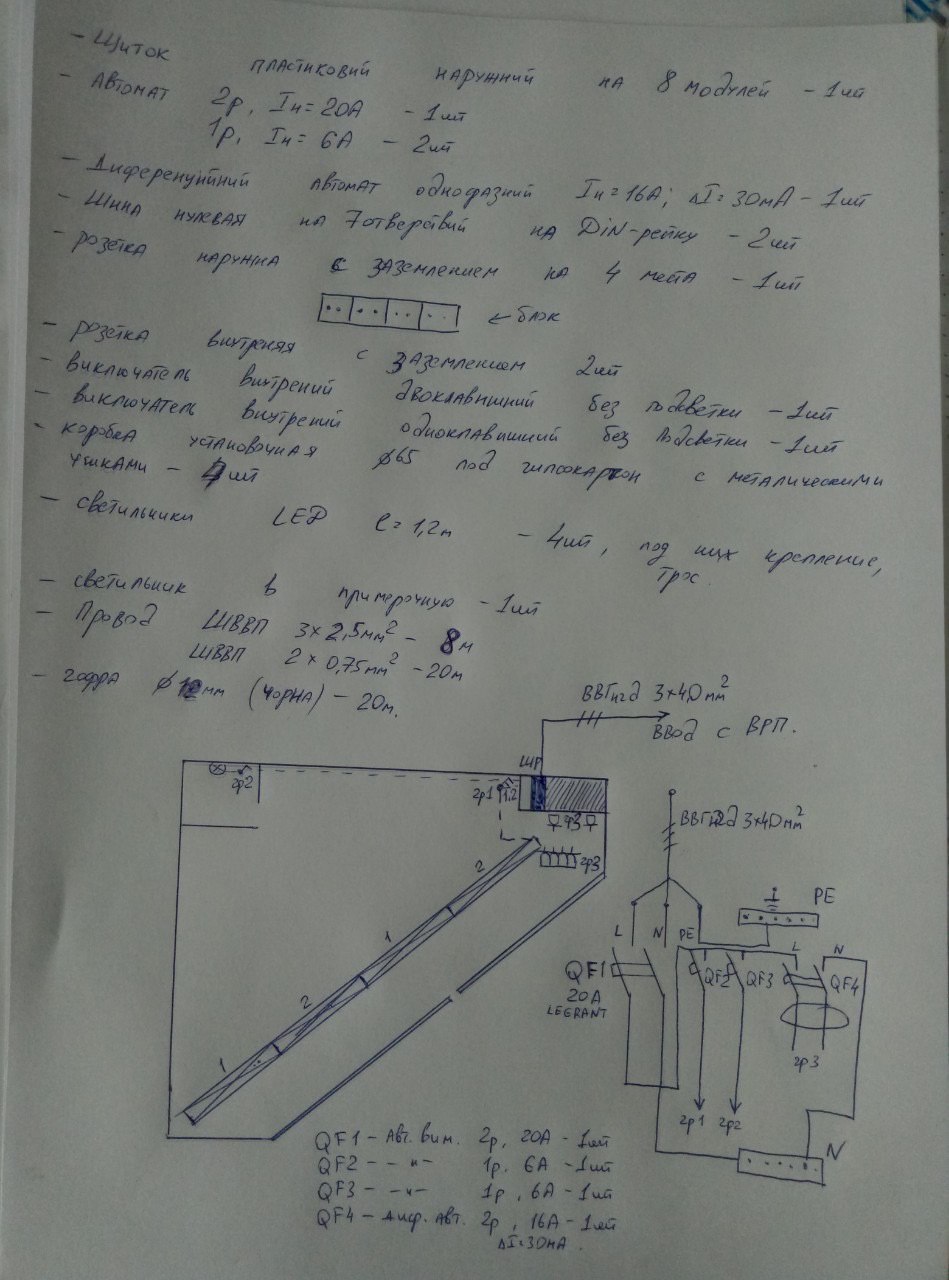 - Щиток пластиковий наружний на 8 модулей - 1шт
- Автомат 2р, Iн = 20А - 1шт
1р, Iн = 6А - 2шт
- Диференцийний автомат однофазний Iн = 16А; ΔI = 30мА - 1шт
- Шина нулевая на 7 отверствий на DiN-рейку - 2шт
- розетка наружна с заземлением на 4 места - 1шт
← блок
- розетка внутреняя с заземлением 2шт
- виключатель внутрений двоклавишний без подсветки - 1шт
- виключатель внутрений одноклавишний без подсветки - 1шт
- коробка установочная ø65 под гипсокартон с металическими
ушками - 4шт
- светильники LED l = 1,2м - 4шт, под них крепление,
трос.
- светильник в примерочную - 1шт
- Провод ШВВП 3×2,5мм² - 8м
ШВВП 2×0,75мм² - 20м
- гофра ø мм (чорна) - 20м.
ВВГнгд 3×4,0мм²
Ввод с ВРП.
ЩР
гр2
гр1
1,2
гр3
гр3
2
1
2
1
ВВГнгд 3×4,0мм²
PE
L N PE
L N
QF1
20А
LEGRANT
QF2 QF3 QF4
гр3
гр1 гр2
N
QF1 - Авт. вим. 2р, 20А - 1шт
QF2 - -"- 1р, 6А - 1шт
QF3 - -"- 1р, 6А - 1шт
QF4 - диф. авт. 2р, 16А - 1шт
ΔI = 30мА.